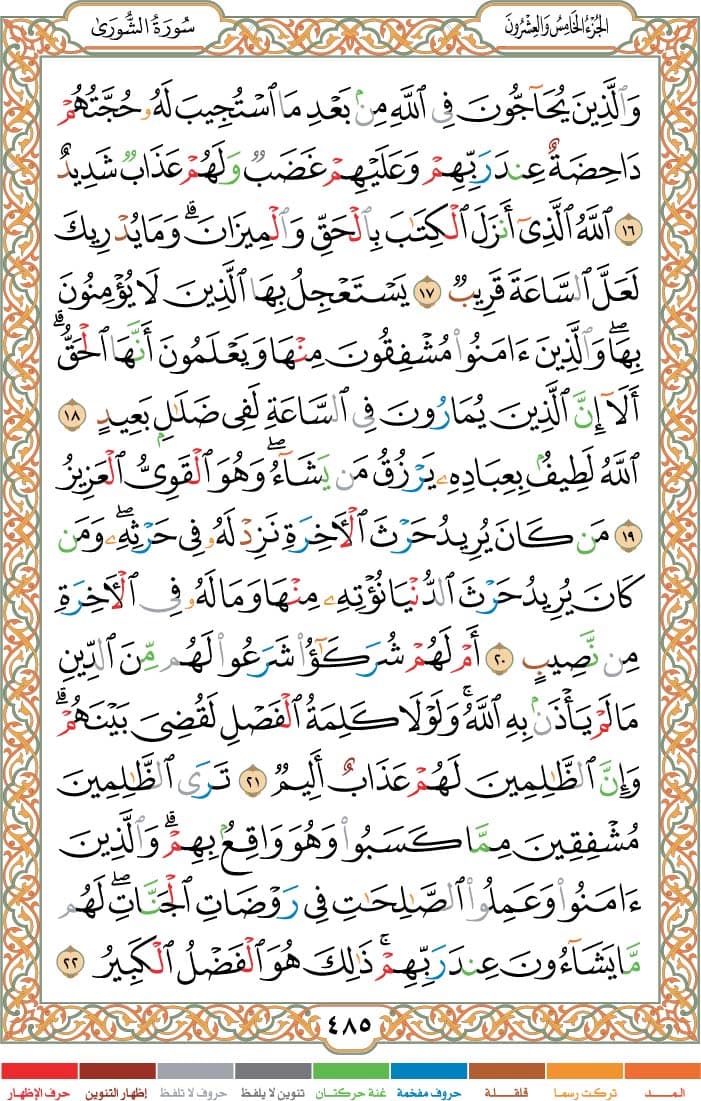 الجُزْءُ الخَامِسُ وَالعِشْرُونَ
سُورَةُ الشُّورَىٰ
وَٱلَّذِينَ يُحَآجُّونَ فِي ٱللَّهِ مِنۢ بَعۡدِ مَا ٱسۡتُجِيبَ لَهُۥ حُجَّتُهُمۡ
دَاحِضَةٌ عِندَ رَبِّهِمۡ وَعَلَيۡهِمۡ غَضَبٞ وَلَهُمۡ عَذَابٞ شَدِيدٌ
١٦ ٱللَّهُ ٱلَّذِيٓ أَنزَلَ ٱلۡكِتَٰبَ بِٱلۡحَقِّ وَٱلۡمِيزَانَۗ وَمَا يُدۡرِيكَ
لَعَلَّ ٱلسَّاعَةَ قَرِيبٞ ١٧ يَسۡتَعۡجِلُ بِهَا ٱلَّذِينَ لَا يُؤۡمِنُونَ
بِهَاۖ وَٱلَّذِينَ ءَامَنُواْ مُشۡفِقُونَ مِنۡهَا وَيَعۡلَمُونَ أَنَّهَا ٱلۡحَقُّۗ
أَلَآ إِنَّ ٱلَّذِينَ يُمَارُونَ فِي ٱلسَّاعَةِ لَفِي ضَلَٰلِۭ بَعِيدٍ ١٨
ٱللَّهُ لَطِيفُۢ بِعِبَادِهِۦ يَرۡزُقُ مَن يَشَآءُۖ وَهُوَ ٱلۡقَوِيُّ ٱلۡعَزِيزُ
١٩ مَن كَانَ يُرِيدُ حَرۡثَ ٱلۡأٓخِرَةِ نَزِدۡ لَهُۥ فِي حَرۡثِهِۦۖ وَمَن
كَانَ يُرِيدُ حَرۡثَ ٱلدُّنۡيَا نُؤۡتِهِۦ مِنۡهَا وَمَا لَهُۥ فِي ٱلۡأٓخِرَةِ
مِن نَّصِيبٍ ٢٠ أَمۡ لَهُمۡ شُرَكَٰٓؤُاْ شَرَعُواْ لَهُم مِّنَ ٱلدِّينِ
مَا لَمۡ يَأۡذَنۢ بِهِ ٱللَّهُۚ وَلَوۡلَا كَلِمَةُ ٱلۡفَصۡلِ لَقُضِيَ بَيۡنَهُمۡۗ
وَإِنَّ ٱلظَّٰلِمِينَ لَهُمۡ عَذَابٌ أَلِيمٞ ٢١ تَرَى ٱلظَّٰلِمِينَ
مُشۡفِقِينَ مِمَّا كَسَبُواْ وَهُوَ وَاقِعُۢ بِهِمۡۗ وَٱلَّذِينَ
ءَامَنُواْ وَعَمِلُواْ ٱلصَّٰلِحَٰتِ فِي رَوۡضَاتِ ٱلۡجَنَّاتِۖ لَهُم
مَّا يَشَآءُونَ عِندَ رَبِّهِمۡۚ ذَٰلِكَ هُوَ ٱلۡفَضۡلُ ٱلۡكَبِيرُ ٢٢
٤٨٥
المـــد تركت رسما قلقلة حروف مفخمة غنة حركتان تنوين لا يلفظ حروف لا تلفظ إظهار التنوين حرف الإظهار